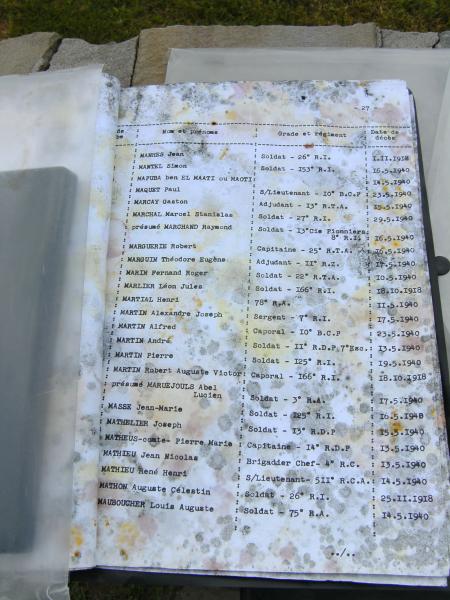 - 27 -
de Nom et prénoms Grade et régiment Date de décès
MANDES Jean Soldat - 26° R.I. I.II.1918
MANTEL Simon Soldat - I53° R.I. 16.5.1940
MAPUBA ben EL MAATI ou MAOTI 14.5.1940
MAQUET Paul S/Lieutenant - I0° B.C.P 23.5.1940
MARCAY Gaston Adjudant - I3° R.T.A. 15.5.1940
MARCHAL Marcel Stanislas Soldat - 27° R.I. 29.5.1940
présumé MARCHAND Raymond Soldat - I3°Cie Pionniers
8° R.I. 16.5.1940
MARGUERIE Robert Capitaine - 25° R.T.A. 16.5.1940
MARGUIN Théodore Eugène Adjudant - II° R.Z. 17.5.1940
MARIN Fernand Roger Soldat - 22° R.T.A. 10.5.1940
MARLIER Léon Jules Soldat - I66° R.I. 18.10.1918
MARTIAL Henri 78° R.A. 11.5.1940
MARTIN Alexandre Joseph Sergent - 7° R.I. 17.5.1940
MARTIN Alfred Caporal - I0° B.C.P 23.5.1940
MARTIN André Soldat - II° R.D.P 7°Esc. 13.5.1940
MARTIN Pierre Soldat - I25° R.I. 19.5.1940
MARTIN Robert Auguste Victor Caporal - I66° R.I. 18.10.1918
présumé MARUEJOULS Abel
Lucien Soldat - 3° R.A. 17.5.1940
MASSE Jean-Marie Soldat - I25° R.I. 16.5.1940
MATHELIER Joseph Soldat - I3° R.D.P 15.5.1940
MATHEUS-comte- Pierre Marie Capitaine - I4° R.D.P 13.5.1940
MATHIEU Jean Nicolas Brigadier Chef- 4° R.C. 13.5.1940
MATHIEU René Henri S/Lieutenant- 5II° R.C.A. 14.5.1940
MATHON Auguste Célestin Soldat - 26° R.I. 25.II.1918
MAUBOUCHER Louis Auguste Soldat - 75° R.A. 14.5.1940
../..